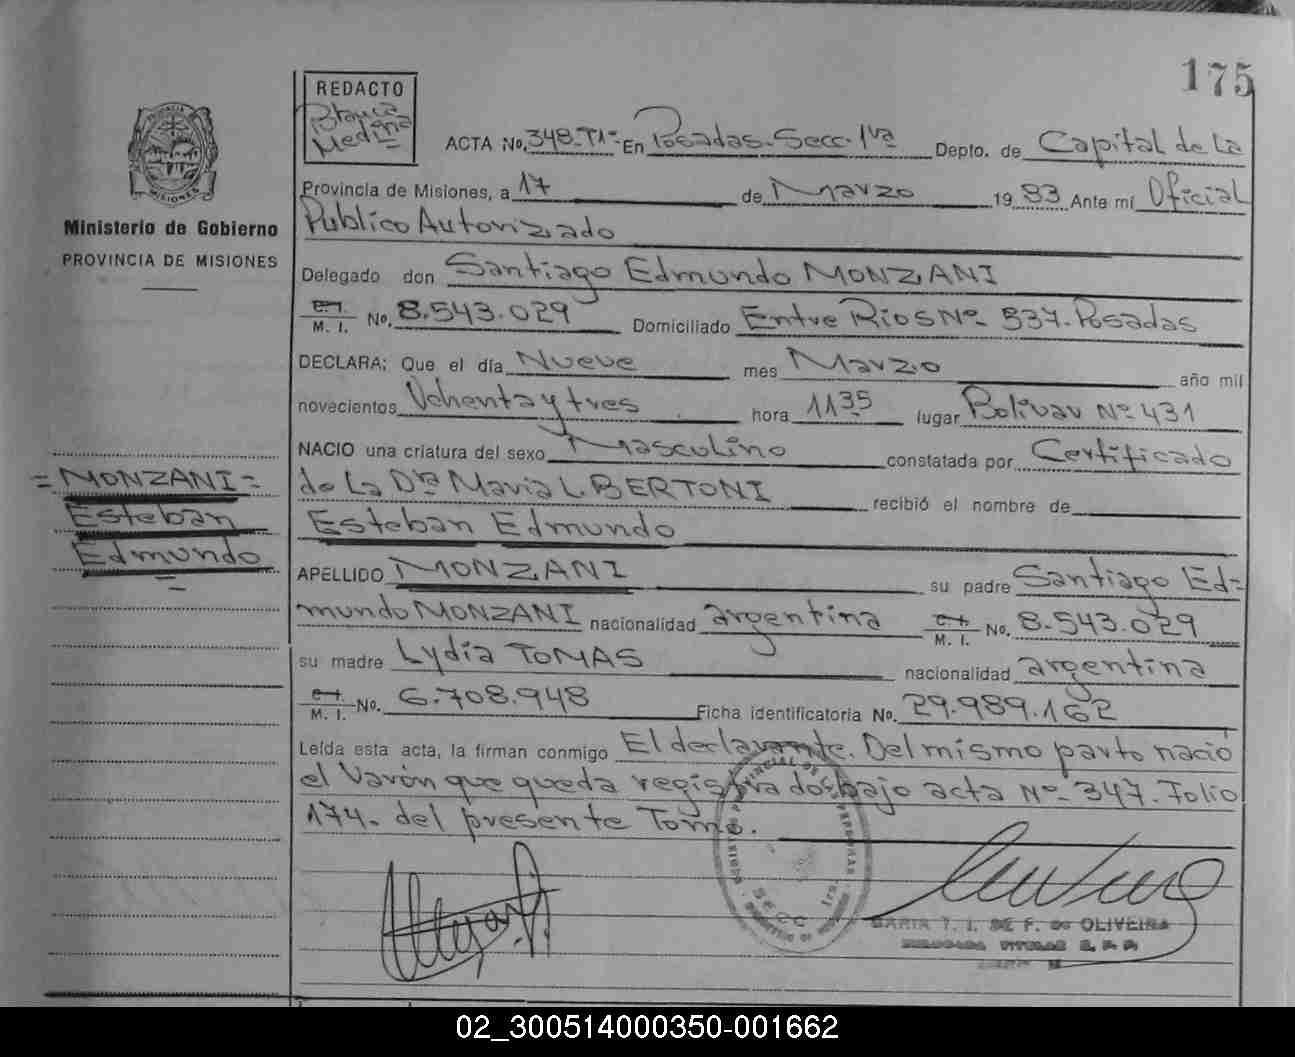 175
REDACTO
Medina
ACTA No. 348-T1- En Posadas-Secc. 1ra Depto. de Capital de La
Provincia de Misiones, a 17 de Marzo 1983 Ante mí Oficial
Público Autorizado
Delegado don Santiago Edmundo MONZANI
C.I. M. I. No. 8.543.029 Domiciliado Entre Rios Nº 537-Posadas
DECLARA: Que el día Nueve mes Marzo año mil
novecientos Ochenta y tres hora 1135 lugar Bolivar Nº 431
NACIO una criatura del sexo Masculino constatada por Certificado
de La Dra Maria L. BERTONI recibió el nombre de
Esteban Edmundo
APELLIDO MONZANI su padre Santiago Ed=
mundo MONZANI nacionalidad argentina C.I. M. I. No. 8.543.029
su madre Lydia TOMAS nacionalidad argentina
C.I. M. I. No. 6.708.948 Ficha identificatoria No. 29.989.162
Leída esta acta, la firman conmigo El declarante. Del mismo parto nació
el Varón que queda registrado bajo acta Nº 347. Folio
174- del presente Tomo.
Ministerio de Gobierno
PROVINCIA DE MISIONES
=MONZANI=
Esteban
Edmundo
SECC 1ra.
MARIA T. I. DE F. DO OLIVEIRA
02_300514000350-001662